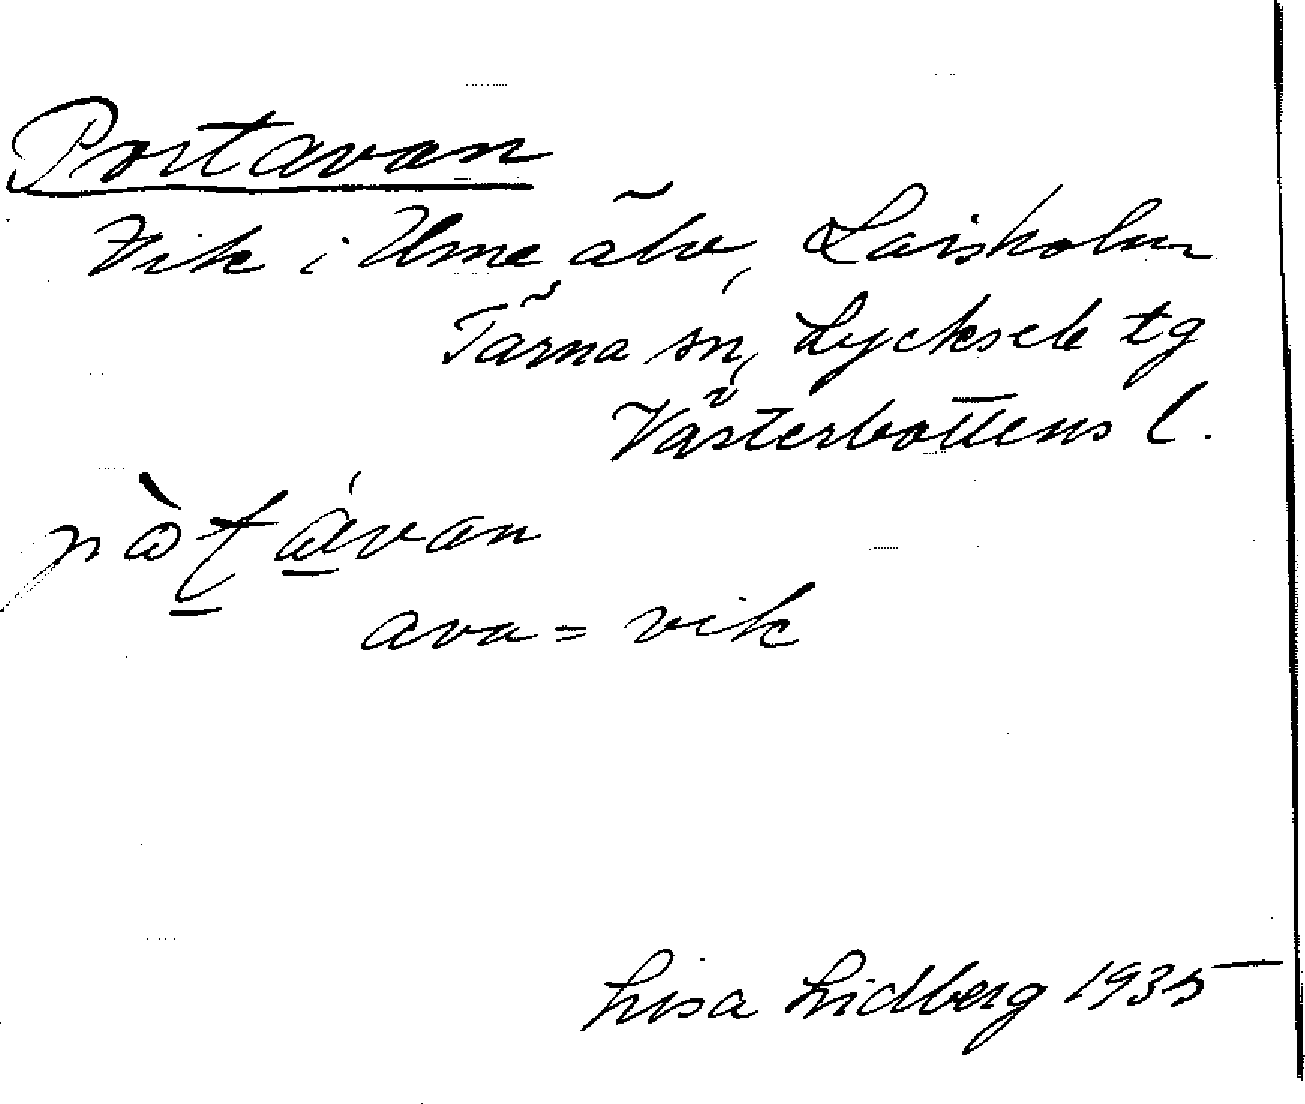 Portavan
Vik i Ume älv, Laisholm
Tärna sn, Lycksele tg
Västerbottens l.
ava = vik
Lisa Lidberg 1935